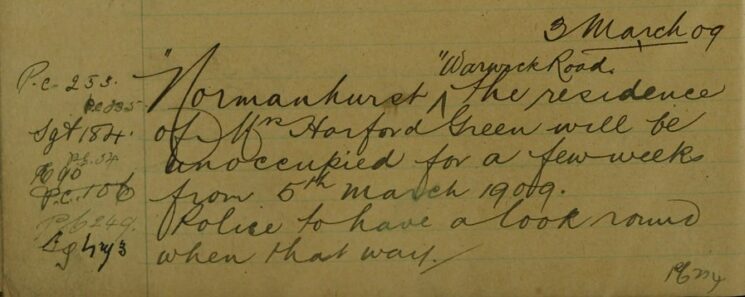 3 March 09
"Warwick Road.
"Normanhurst ^ the residence
of Mrs Harford Green will be
unoccupied for a few weeks
from 5th March 1909.
Police to have a look round
when that way.
P.C. 253.
P.C. 235
Sgt 184.
P.C. 54
P.C. 106
P.C 249.